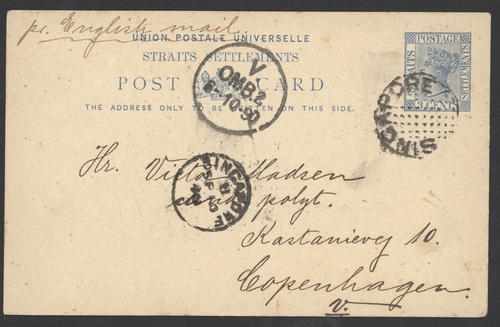 pr. English mail.
UNION POSTALE UNIVERSELLE
STRAITS SETTLEMENTS
POST CARD
THE ADDRESS ONLY TO BE WRITTEN ON THIS SIDE.
POSTAGE
SETTLEMENTS
3 CENTS
SINGAPORE
V
OMB2
10.90
SINGAPORE
Hr. Victor Madsen
cand. polyt.
Kastanievej 10.
Copenhagen
V.